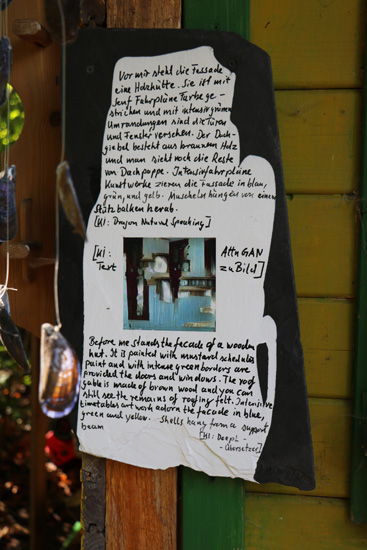 Vor mir steht die Fassade
eine Holzhütte. Sie ist mit
Senf Fahrpläne Farbe ge-
strichen und mit intensivgrünen
Umrandungen sind die Türen
und Fenster versehen. Der Dach-
giebel besteht aus braunem Holz
und man sieht noch die Reste
von Dachpappe. Intensivfahrpläne
Kunstwerke zieren die Fassade in blau,
grün, und gelb. Muscheln hängen von einem
Stützbalken herab.
[KI: Dragon Natural Speaking]
[KI: AttnGAN
Text zu Bild]
Before me stands the facade of a wooden
hut. It is painted with mustard schedules
paint and with intense green borders are
provided the doors and windows. The roof
gable is made of brown wood and you can
still see the remains of roofing felt. Intensive
timetables artwork adorn the facade in blue,
green and yellow. Shells hang from a support
beam
[KI: DeepL-
-Übersetzer]